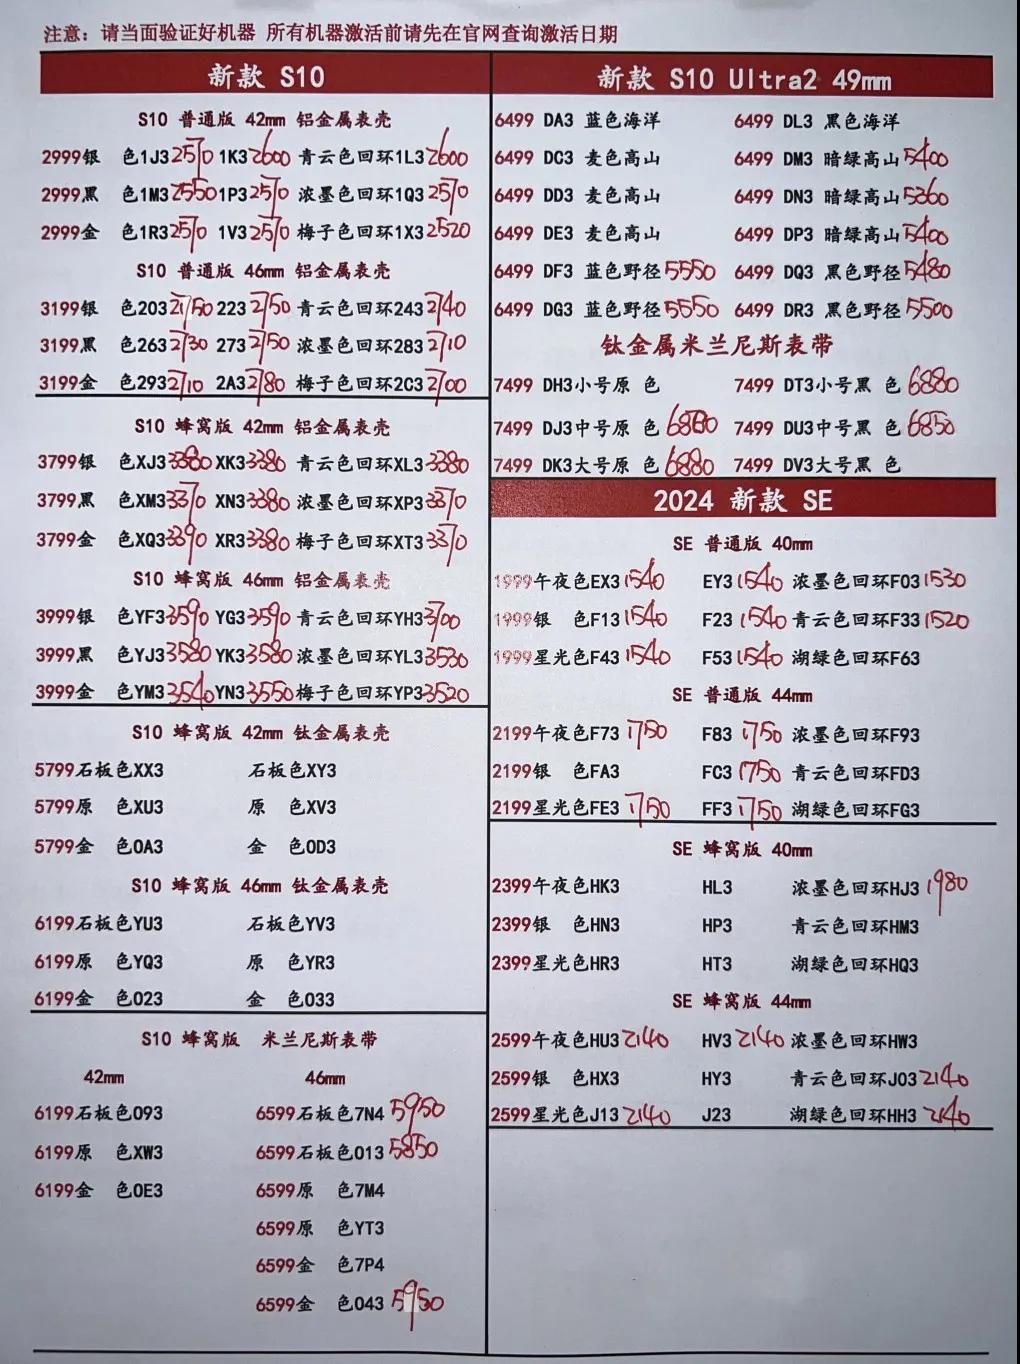 注意：请当面验证好机器 所有机器激活前请先在官网查询激活日期
新款 S10
S10 普通版 42mm 铝合金表壳
2999银 色1J3 2570 1K3 2600 青云色回环1L3 2600
2999黑 色1M3 2550 1P3 2570 浓墨色回环1Q3 2570
2999金 色1R3 2570 1V3 2570 梅子色回环1X3 2520
S10 普通版 46mm 铝金属表壳
3199银 色203 2750 223 2750 青云色回环243 2740
3199黑 色263 2730 273 2750 浓墨色回环283 2710
3199金 色293 2710 2A3 2780 梅子色回环2C3 2700
S10 蜂窝版 42mm 铝金属表壳
3799银 色XJ3 3380 XK3 3380 青云色回环XL3 3380
3799黑 色XM3 3370 XN3 3380 浓墨色回环XP3 3370
3799金 色XQ3 3390 XR3 3380 梅子色回环XT3 3370
S10 蜂窝版 46mm 铝金属表壳
3999银 色YF3 3590 YG3 3590 青云色回环YH3 3700
3999黑 色YJ3 3580 YK3 3580 浓墨色回环YL3 3530
3999金 色YM3 3540 YN3 3550 梅子色回环YP3 3520
S10 蜂窝版 42mm 钛金属表壳
5799石板色XX3 石板色XY3
5799原 色XU3 原 色XV3
5799金 色0A3 金 色0D3
S10 蜂窝版 46mm 钛金属表壳
6199石板色YU3 石板色YV3
6199原 色YQ3 原 色YR3
6199金 色023 金 色033
S10 蜂窝版 米兰尼斯表带
42mm 46mm
6199石板色093 6599石板色7N4 5950
6199原 色XW3 6599石板色013 5850
6199金 色0E3 6599原 色7M4
6599原 色YT3
6599金 色7P4
6599金 色043 5950
新款 S10 Ultra2 49mm
6499 DA3 蓝色海洋 6499 DL3 黑色海洋
6499 DC3 麦色高山 6499 DM3 暗绿高山 5400
6499 DD3 麦色高山 6499 DN3 暗绿高山 5360
6499 DE3 麦色高山 6499 DP3 暗绿高山 5400
6499 DF3 蓝色野径 5550 6499 DQ3 黑色野径 5480
6499 DG3 蓝色野径 5550 6499 DR3 黑色野径 5500
钛金属米兰尼斯表带
7499 DH3小号原 色 7499 DT3小号黑 色 6880
7499 DJ3中号原 色 7499 DU3中号黑 色 6850
7499 DK3大号原 色 6880 7499 DV3大号黑 色
2024 新款 SE
SE 普通版 40mm
1999午夜色EX3 1540 EY3 1540 浓墨色回环F03 1530
1999银 色F13 1540 F23 1540 青云色回环F33 1520
1999星光色F43 1540 F53 1540 湖绿色回环F63
SE 普通版 44mm
2199午夜色F73 1750 F83 1750 浓墨色回环F93
2199银 色FA3 FC3 1750 青云色回环FD3
2199星光色FE3 1750 FF3 1750 湖绿色回环FG3
SE 蜂窝版 40mm
2399午夜色HK3 HL3 浓墨色回环HJ3 1980
2399银 色HN3 HP3 青云色回环HM3
2399星光色HR3 HT3 湖绿色回环HQ3
SE 蜂窝版 44mm
2599午夜色HU3 2140 HV3 2140 浓墨色回环HW3
2599银 色HX3 HY3 青云色回环J03 2140
2599星光色J13 2140 J23 湖绿色回环HH3 2140